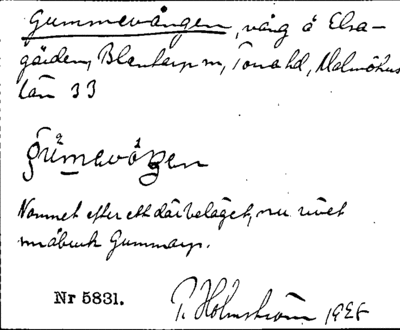 Gummevången, vång å Elsa-
gården, Blentarp sn, Torna hd, Malmöhus
län 33
Namnet efter ett där beläget, nu rivet
småbruk Gummarp.
Nr 5831.
P. Holmström 1926